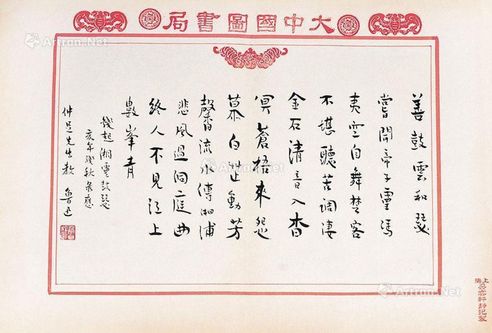 大中國圖書局
善鼓雲和瑟
嘗聞帝子靈馮
夷空自舞楚客
不堪聽苦調淒
金石清音入杳
冥蒼梧來怨
慕白芷動芳
馨流水傳湘浦
悲風過洞庭曲
終人不見江上
數峯青
錢起湘靈鼓瑟
亥年殘秋录應
仲足先生教 魯迅
上海
Artron.Net